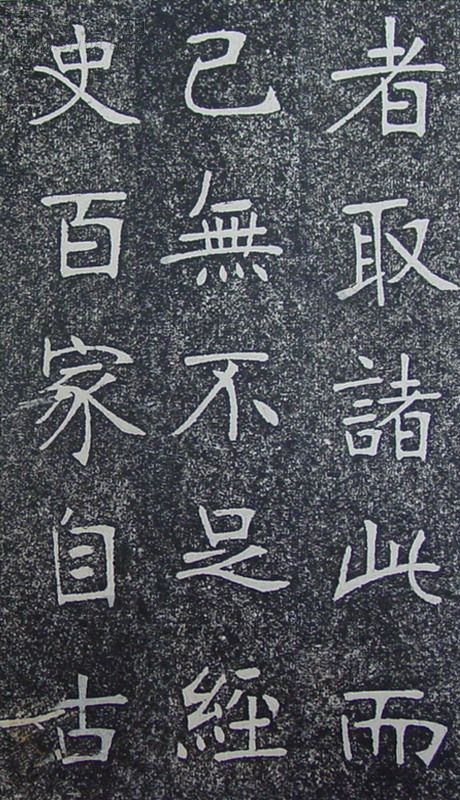 者取諸此而
已無不足經
史百家自古